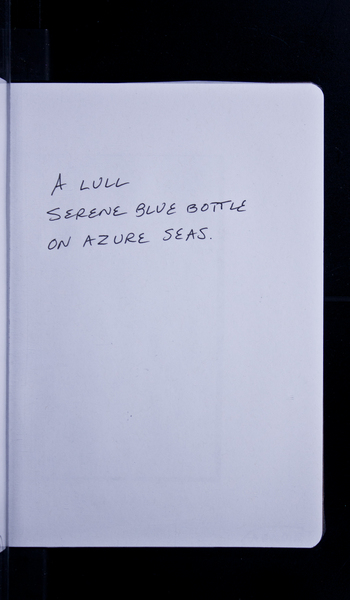 A LULL
SERENE BLUE BOTTLE
ON AZURE SEAS.